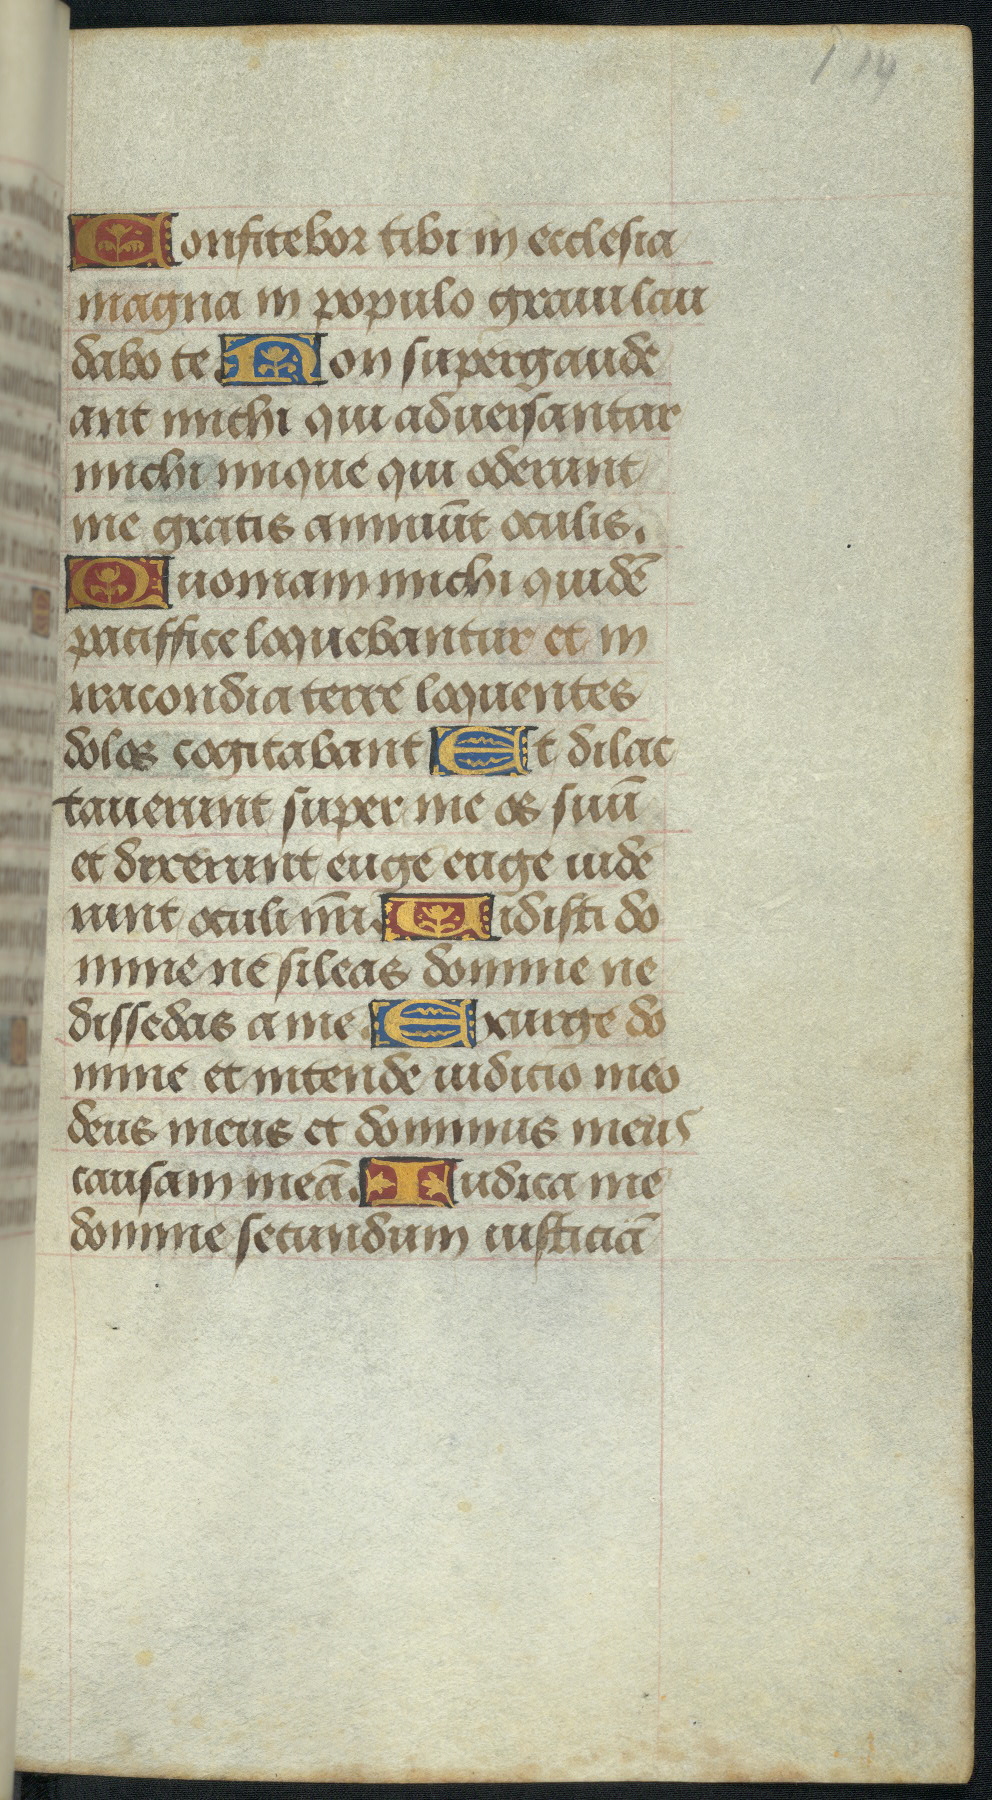 Confitebor tibi in ecclesia
magna in populo graui lau
dabo te Non supergaude
ant michi qui aduersantur
michi inique qui oderunt
me gratis annuūt oculis.
Quoniam michi quidē
paciffice loquebantur et in
iracondia terre loquentes
dolos cogitabant Et dilac
tauerunt super me os suū
et dixerunt euge euge uide
runt oculi nr̄i. Uidisti do
mine ne sileas domine ne
dissedas a me. Exurge do
mine et intende iudicio meo
deus meus et dominus meus
causam meā. Iudica me
domine secundum iusticiā